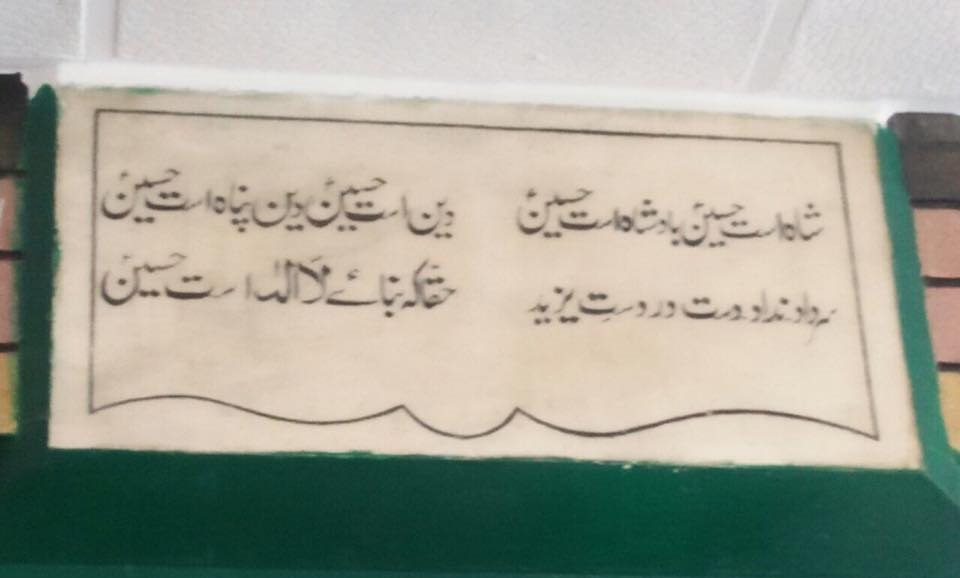 شاہ است حسینؑ بادشاہ است حسینؑ دین است حسینؑ دین پناہ است حسینؑ
سرداد نداد دست در دستِ یزید حقا کہ بنائے لَا اِلٰہ است حسینؑ